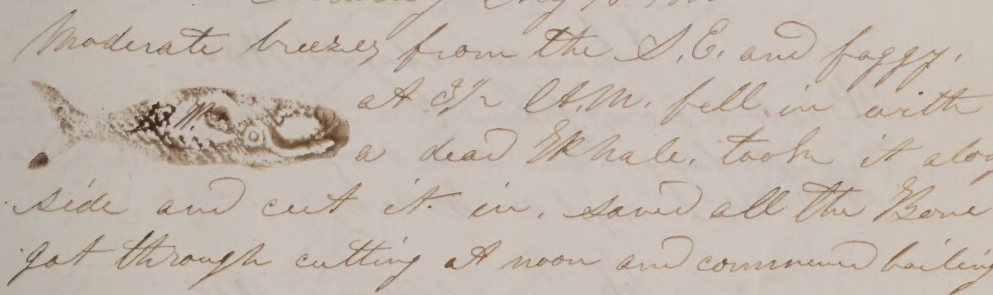 Moderate breezes from the S.E. and foggy.
at 3½ A.M. fell in with
a dead Whale. took it along
side and cut it in. saved all the Bone
got through cutting at noon and commenced boiling